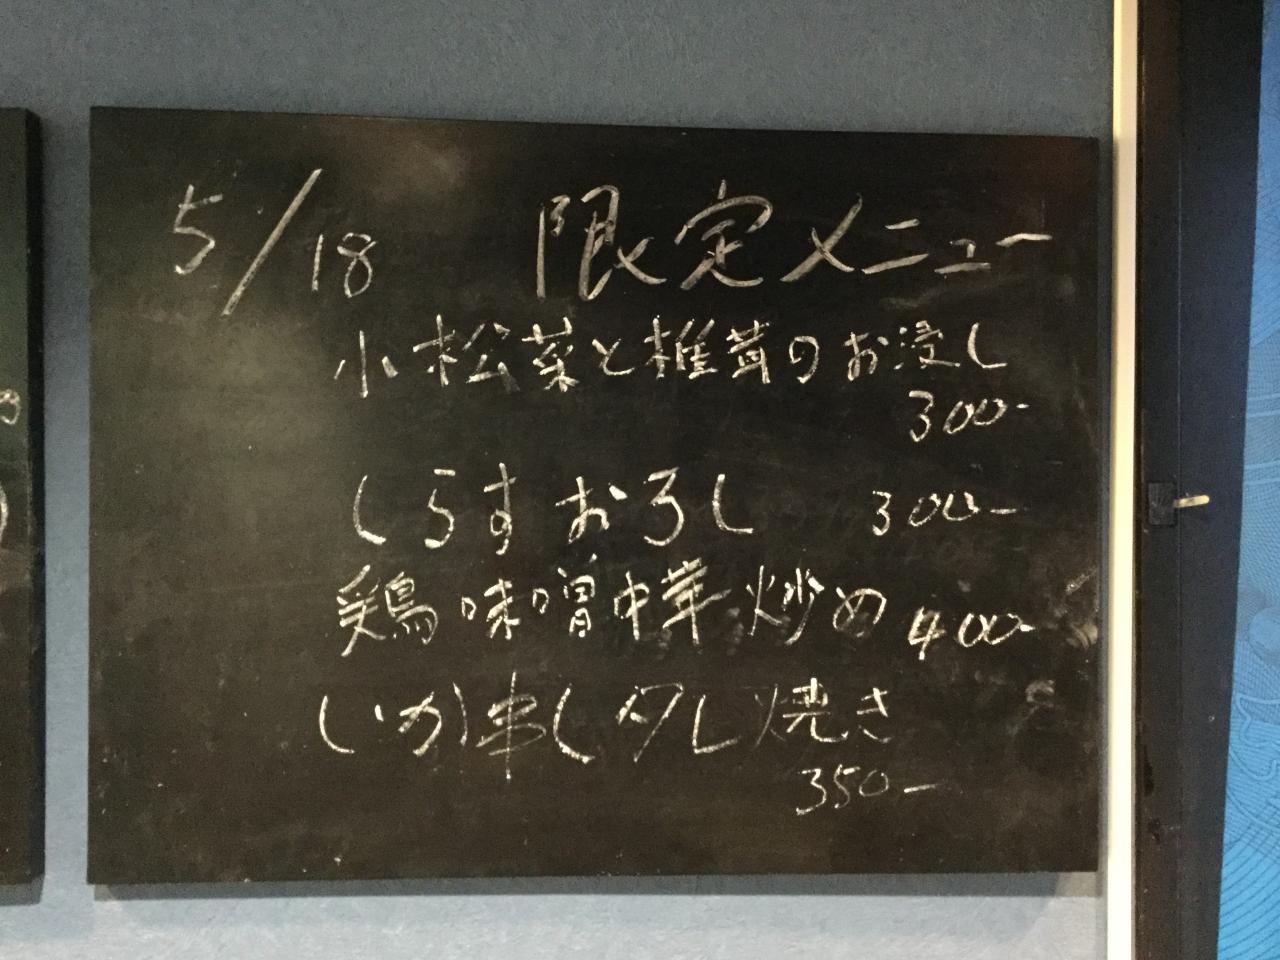 5/18 限定メニュー
小松菜と椎茸のお浸し
300-
しらすおろし 300-
鶏味噌中華炒め 400-
いか串しタレ焼き
350-